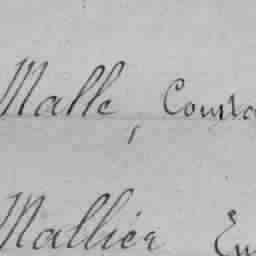 Malle, Consta
Mallier Em